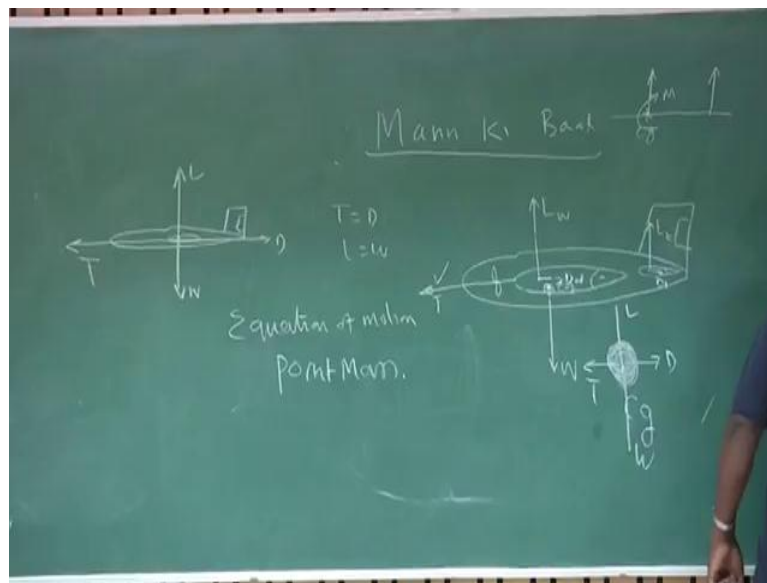 Mann Ki Baat
M
cg
L
T
D
W
T = D
L = W
Equation of motion
Point Mass.
Lw
Lt
V
T
W
L
T
D
cg
W